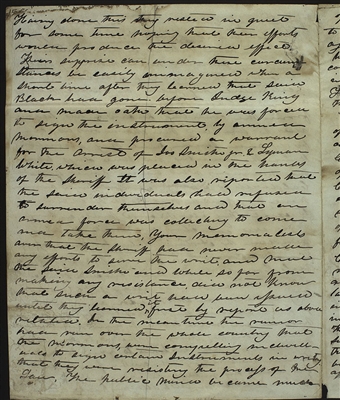 Having done this they rested in quiet
for some time hoping that their efforts
would produce the desired effect.
Their surprise can under these circum
stances be easily immagined when a
short time after they learned that said
Black had gone before Judge King
and made oath that he was forced
to sign the instrument by armed
mormons, and procured a warrant
for the arrest of Jos Smith Jr & Lyman
White, which was placed in the hands
of the Sheriff It was also reported that
the said individuals had refused
to surrender themselves and that an
armed force was collecting to come
and take them. Your memorialists
aver that the Sheriff had never made
any efforts to serve the writ, and that
the said Smith and White so far from
making any resistance did not know
that such a writ had been issued
until they learned it first by report as above
related. In the mean time the rumor
had run over the whole country that
the mormons were compelling individ
uals to sign certain Instruments in writing
that they were resisting the process of the
Law. The public mind became much